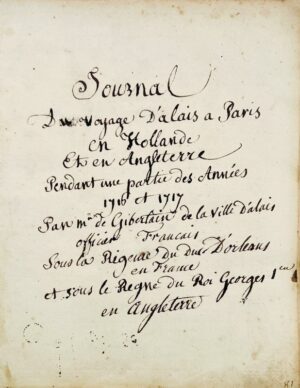 Journal
Du voyage D'alais a Paris
en Hollande
Et en Angleterre
Pendant une partie des Années
1716 et 1717
Par mr. de Gibertain de la ville d'alais
officier Francais
Sous la Régence du duc D'orleans
en France
et sous le Regne du Roi Georges 1er
en Angleterre